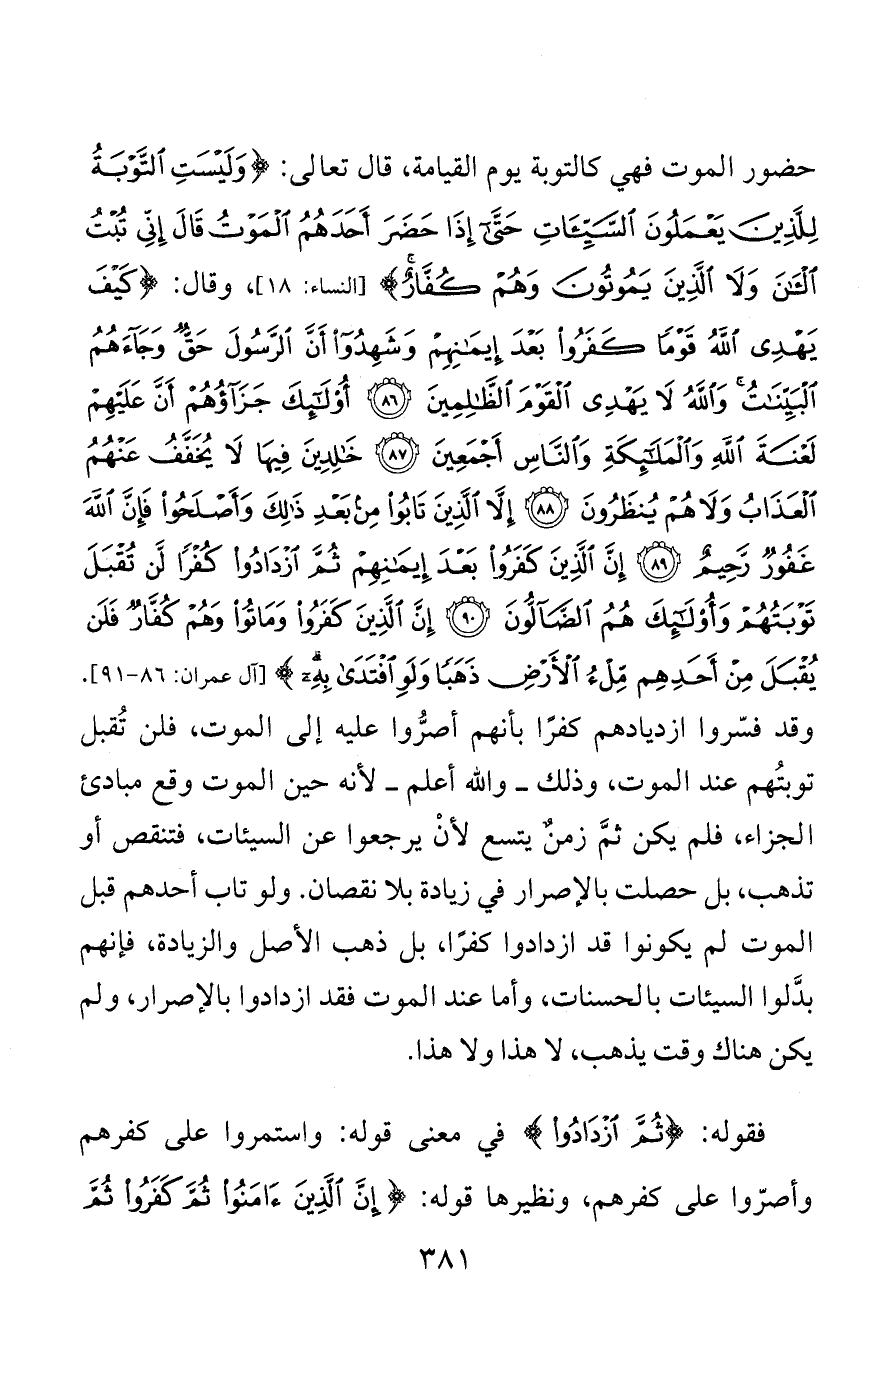 حضور الموت فهي كالتوبة يوم القيامة، قال تعالى: ﴿وَلَيْسَتِ ٱلتَّوْبَةُ
لِلَّذِينَ يَعْمَلُونَ ٱلسَّيِّـَٔاتِ حَتَّىٰٓ إِذَا حَضَرَ أَحَدَهُمُ ٱلْمَوْتُ قَالَ إِنِّى تُبْتُ
ٱلْـَٰٔنَ وَلَا ٱلَّذِينَ يَمُوتُونَ وَهُمْ كُفَّارٌ ۚ﴾ [النساء: ١٨]، وقال: ﴿كَيْفَ
يَهْدِى ٱللَّهُ قَوْمًا كَفَرُوا۟ بَعْدَ إِيمَـٰنِهِمْ وَشَهِدُوٓا۟ أَنَّ ٱلرَّسُولَ حَقٌّ وَجَآءَهُمُ
ٱلْبَيِّنَـٰتُ ۚ وَٱللَّهُ لَا يَهْدِى ٱلْقَوْمَ ٱلظَّـٰلِمِينَ ﴿٨٦﴾ أُو۟لَـٰٓئِكَ جَزَآؤُهُمْ أَنَّ عَلَيْهِمْ
لَعْنَةَ ٱللَّهِ وَٱلْمَلَـٰٓئِكَةِ وَٱلنَّاسِ أَجْمَعِينَ ﴿٨٧﴾ خَـٰلِدِينَ فِيهَا لَا يُخَفَّفُ عَنْهُمُ
ٱلْعَذَابُ وَلَا هُمْ يُنظَرُونَ ﴿٨٨﴾ إِلَّا ٱلَّذِينَ تَابُوا۟ مِنۢ بَعْدِ ذَٰلِكَ وَأَصْلَحُوا۟ فَإِنَّ ٱللَّهَ
غَفُورٌ رَّحِيمٌ ﴿٨٩﴾ إِنَّ ٱلَّذِينَ كَفَرُوا۟ بَعْدَ إِيمَـٰنِهِمْ ثُمَّ ٱزْدَادُوا۟ كُفْرًا لَّن تُقْبَلَ
تَوْبَتُهُمْ وَأُو۟لَـٰٓئِكَ هُمُ ٱلضَّآلُّونَ ﴿٩٠﴾ إِنَّ ٱلَّذِينَ كَفَرُوا۟ وَمَاتُوا۟ وَهُمْ كُفَّارٌ فَلَن
يُقْبَلَ مِنْ أَحَدِهِم مِّلْءُ ٱلْأَرْضِ ذَهَبًا وَلَوِ ٱفْتَدَىٰ بِهِۦٓ ۗ﴾ [آل عمران: ٨٦-٩١].
وقد فسّروا ازديادهم كفرًا بأنهم أصرُّوا عليه إلى الموت، فلن تُقبل
توبتُهم عند الموت، وذلك ـ والله أعلم ـ لأنه حين الموت وقع مبادئ
الجزاء، فلم يكن ثمَّ زمنٌ يتسع لأنْ يرجعوا عن السيئات، فتنقص أو
تذهب، بل حصلت بالإصرار في زيادة بلا نقصان. ولو تاب أحدهم قبل
الموت لم يكونوا قد ازدادوا كفرًا، بل ذهب الأصل والزيادة، فإنهم
بدَّلوا السيئات بالحسنات، وأما عند الموت فقد ازدادوا بالإصرار، ولم
يكن هناك وقت يذهب، لا هذا ولا هذا.
فقوله: ﴿ثُمَّ ٱزْدَادُوا۟﴾ في معنى قوله: واستمروا على كفرهم
وأصرّوا على كفرهم، ونظيرها قوله: ﴿إِنَّ ٱلَّذِينَ ءَامَنُوا۟ ثُمَّ كَفَرُوا۟ ثُمَّ
٣٨١